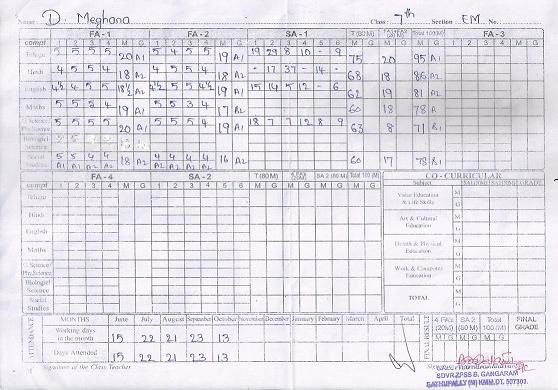 Name : D. Meghana Class : 7th Section : EM No.
FA - 1 FA - 2 SA - 1 T (80 M) Total 100(M) FA - 3
compt 1 2 3 4 M G 1 2 3 4 M G 1 2 3 4 5 6 M G M G M G 1 2 3 4 M G
Telugu 5 5 5 5 20 A1 5 4 5 5 19 A1 19 29 8 10 - 9 75 20 95 A1
Hindi 4 5 5 4 18 A2 4 5 5 4 18 A2 - 17 37 - 14 - 68 18 86 A2
English 4½ 4 5 5 18½ A2 4½ 5 5 4½ 19 A1 15 14 5 12 - 6 62 19 81 A2
Maths 5 5 5 4 19 A1 5 5 3 4 17 A2 60 18 78
G.Science/ Phy.Science 5 5 5 5 20 A1 5 5 5 4 19 A1 18 7 7 12 8 9 63 8 71 B1
Biological Science
Social Studies 5 5 4 4 18 A2 4 4 4 4 16 A2 60 17 78 B1
A1 A1 A2 A2 A2 A2 A2 A2
FA - 4 SA - 2 T (80 M) 4 FAs (20 M) SA 2 (80 M) Total 100 (M) CO - CURRICULAR
compt 1 2 3 4 M G 1 2 3 4 5 6 M G M G M G M G Subject GRADE
Telugu Value Education & Life Skills M G
Hindi Art & Cultural Education M G
English
Maths Health & Physical Education M G
G.Science/ Phy.Science Work & Computer Education M G
Biological Science
Social Studies TOTAL M G
ATTENDANCE MONTHS June July August September October November December January February March April Total FINAL RESULT 4 FAs (20M) SA 2 (80 M) Total 100 (M) FINAL GRADE
Working days in the month 15 22 21 23 13 M
Days Attended 15 22 21 23 13 G
Signature of the Class Teacher
SDVRZPSS B. GANGARAM
SATHUPALLY (M) KMM.DT. 507303.